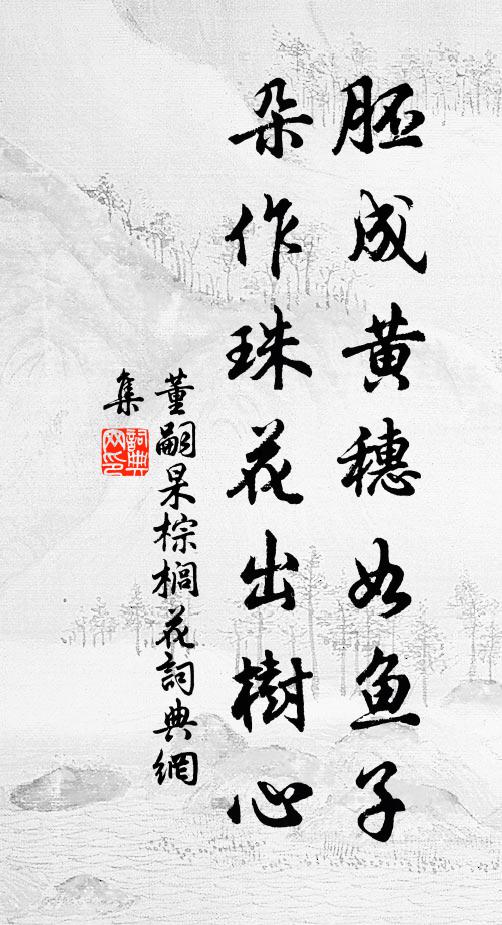 胚成黄穗如鱼子
朵作珠花出樹心
董嗣杲棕榈花詞典網
集
詞典
网印